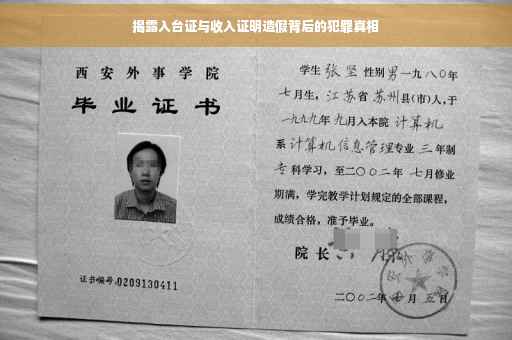 揭露入台证与收入证明造假背后的犯罪真相
西安外事学院
毕业证书
证书编号:0209130411
学生 张坚 性别 男 一九八〇年
七月生，江苏省 苏州县(市)人，于
一九九九年 九月入本院 计算机
系 计算机信息管理专业 三 年制
专科学习，至二〇〇二年 七月修业
期满，学完教学计划规定的全部课程，
成绩合格，准予毕业。
院长
二〇〇二年 月 五日